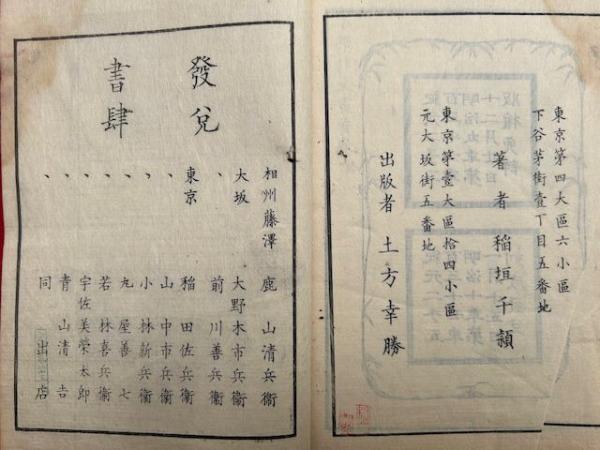 東京第四大區六小區
下谷茅街壹丁目五番地
著者 稲垣千頴
東京第壹大區拾四小區
元大坂街五番地
出版者 土方幸勝
發兌
書肆
相州藤澤 鹿山清兵衞
大坂 大野木市兵衞
、 前川善兵衞
東京 稲田佐兵衞
、 山中市兵衞
、 小林新兵衞
、 丸屋善七
、 若林喜兵衞
、 宇佐美榮太郎
、 青山清吉
、 同出店